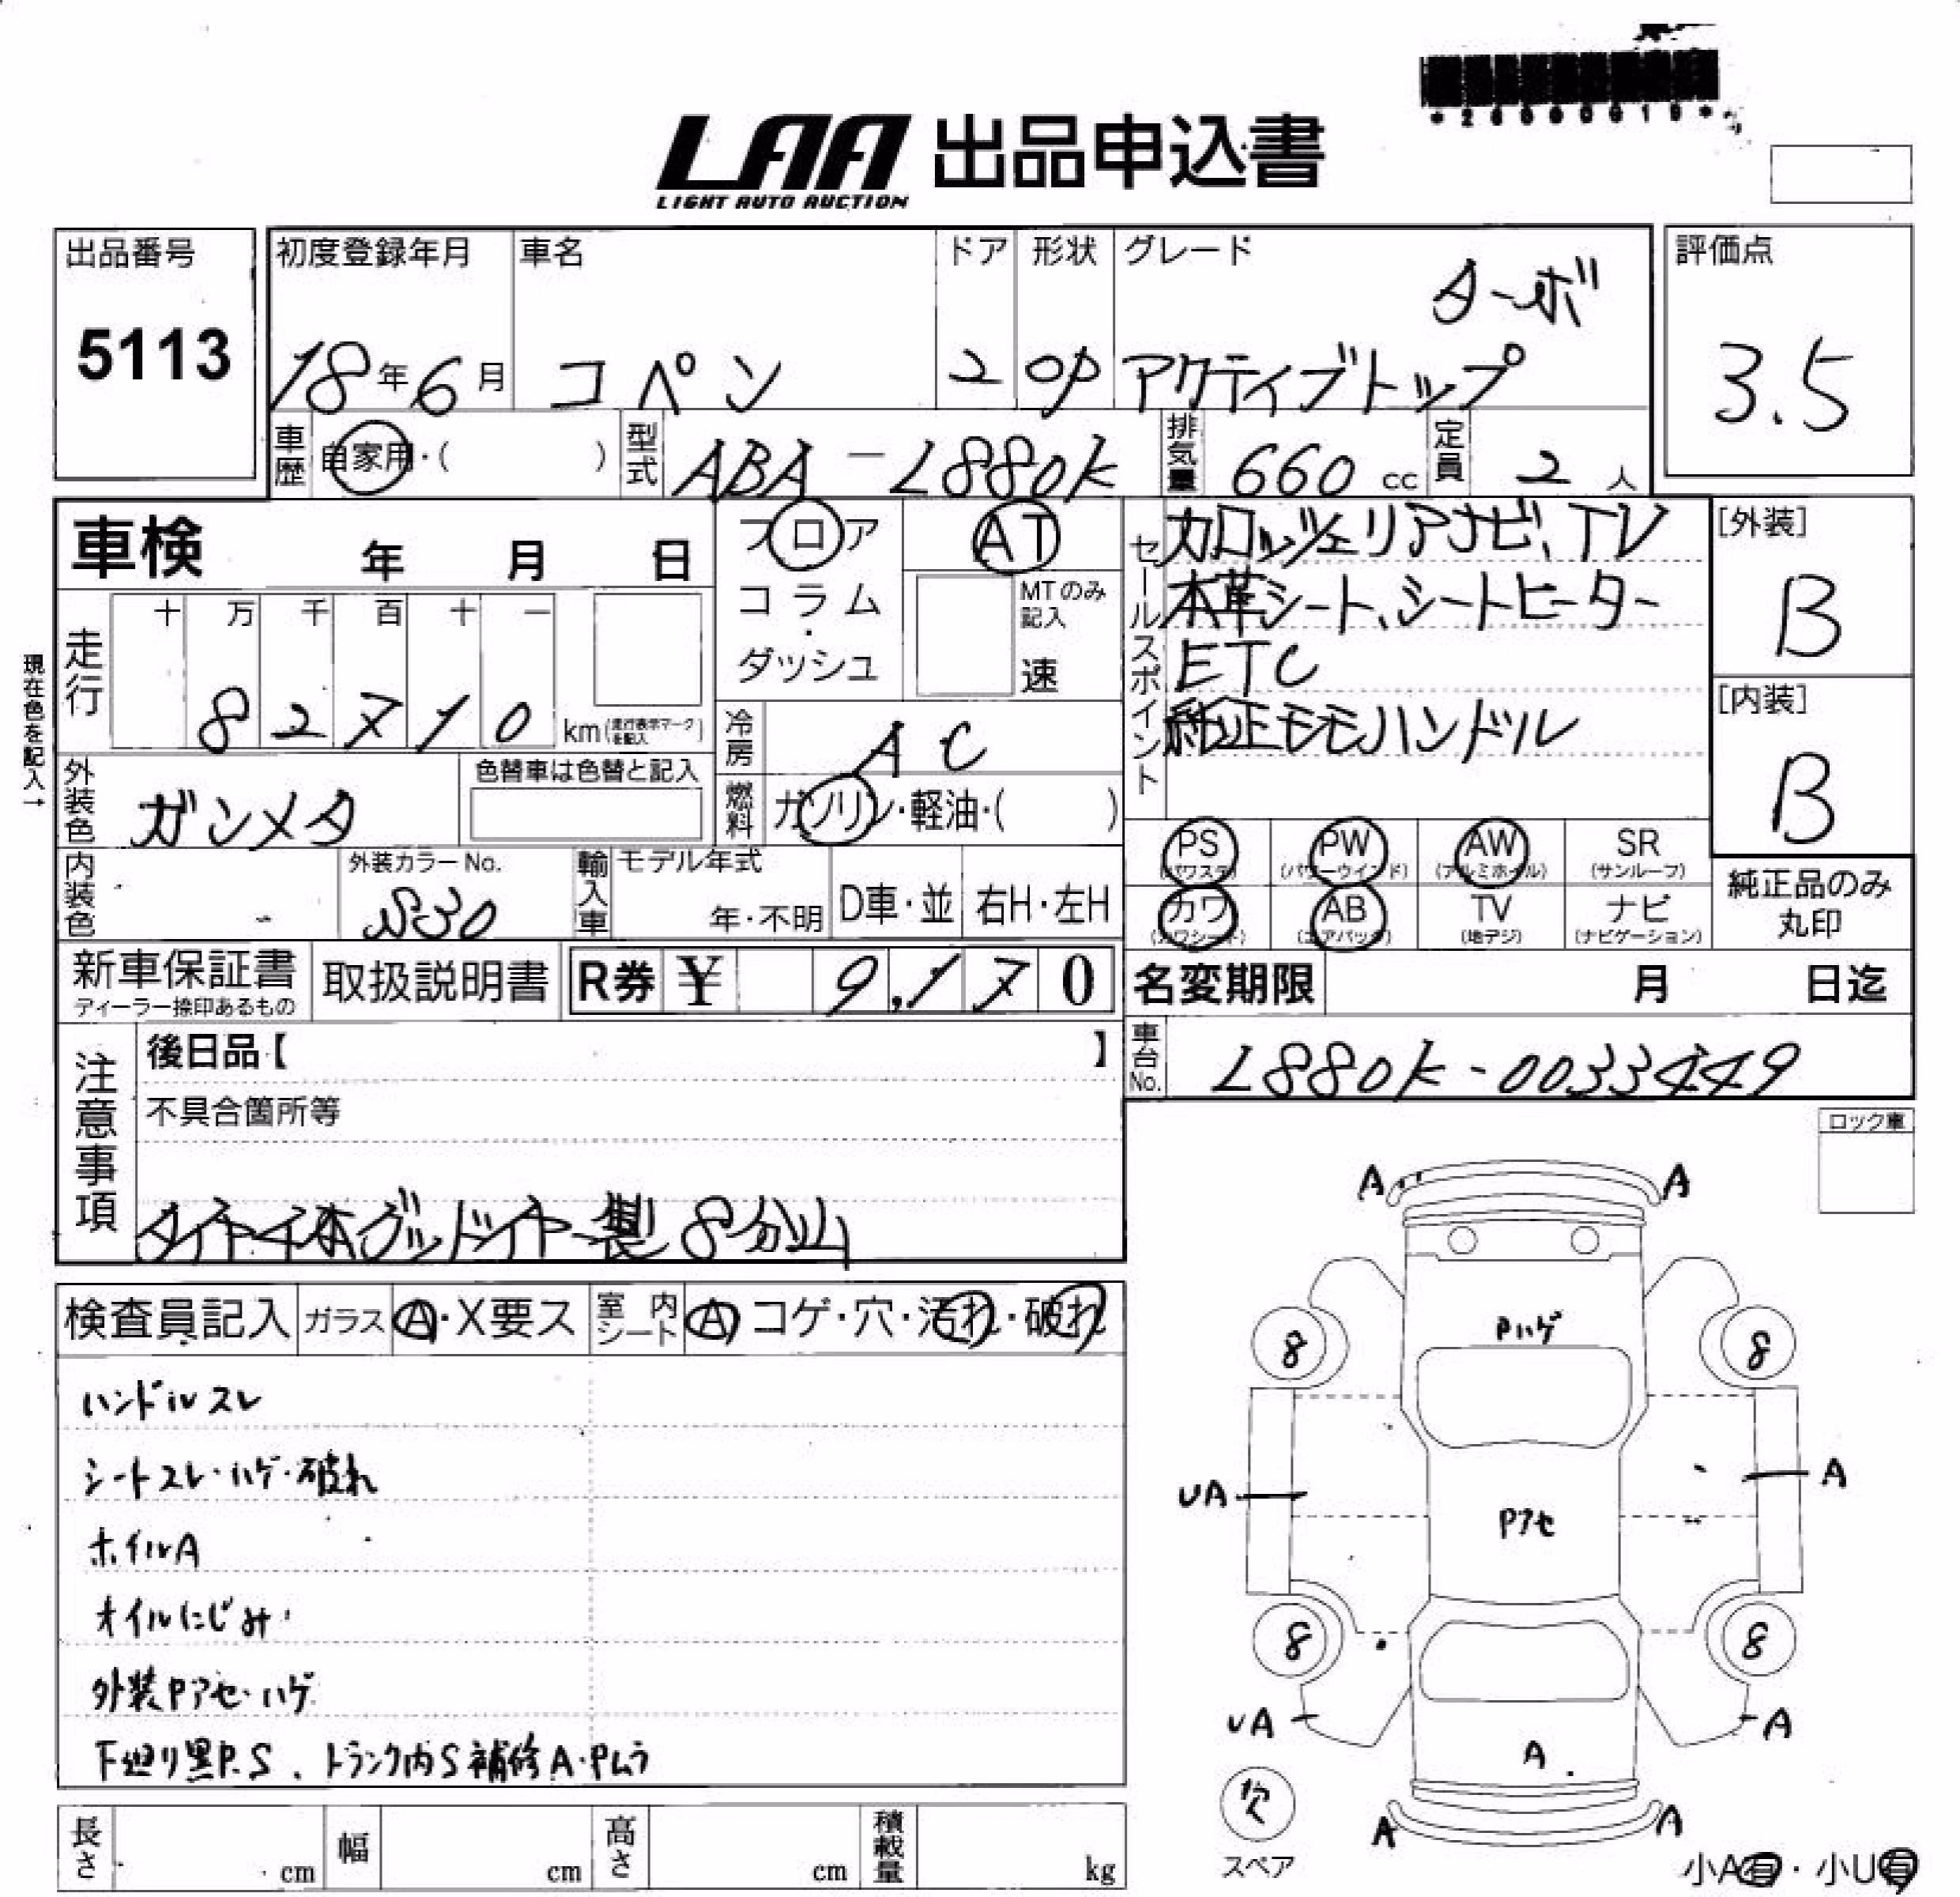 LAA 出品申込書
LIGHT AUTO AUCTION
出品番号
5113
初度登録年月
18年6月
車名
コペン
ドア
2
形状
OP
グレード
ターボ
アクティブトップ
評価点
3.5
車歴 自家用・( )
型式 ABA-L880K
排気量 660 cc
定員 2 人
車検 年 月 日
フロア
コラム
・
ダッシュ
AT
MTのみ
記入
速
セールスポイント
カロッツェリアナビ、TV
本革シート、シートヒーター
ETC
純正モモハンドル
[外装]
B
[内装]
B
現在色を記入→
走行
十 万 千 百 十 一
8 2 7 1 0 km(走行表示マークを記入)
冷房 AC
外装色 ガンメタ
色替車は色替と記入
燃料 ガソリン・軽油・( )
内装色
外装カラーNo.
S30
輸入車
モデル年式
年・不明
D車・並
右H・左H
PS
(パワステ)
PW
(パワーウインド)
AW
(アルミホイル)
SR
(サンルーフ)
カワ
(カワシート)
AB
(エアバッグ)
TV
(地デジ)
ナビ
(ナビゲーション)
純正品のみ
丸印
新車保証書
ディーラー捺印あるもの
取扱説明書
R券 ¥ 9,170
名変期限 月 日迄
車台No. L880K-0033449
注意事項
後日品【 】
不具合箇所等
タイヤ4本グッドイヤー製8分山
ロック車
検査員記入
ガラス A・X要ス
室内シート A コゲ・穴・汚れ・破れ
ハンドルスレ
シートスレ・ハゲ・破れ
ホイルA
オイルにじみ
外装Pアセ・ハゲ
下廻り黒P.S、トランク内S補修A・Pムラ
長さ cm
幅 cm
高さ cm
積載量 kg
A A
Pハゲ
8 8
UA A
Pアセ
8 8
UA A
A
欠
スペア
A A
小A有・小U有